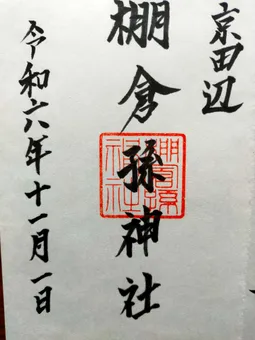 京田辺
棚倉孫神社
令和六年十一月一日
棚倉孫
神社